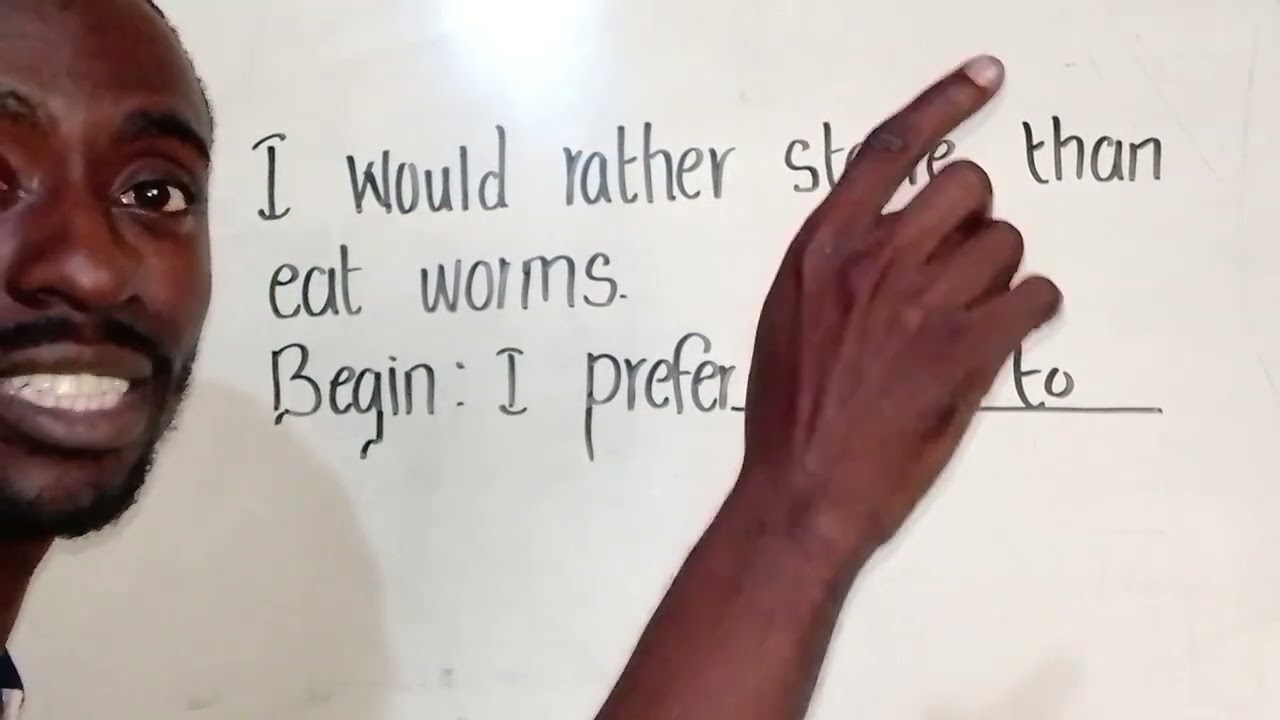 I would rather than
eat worms.
Begin: I prefer to